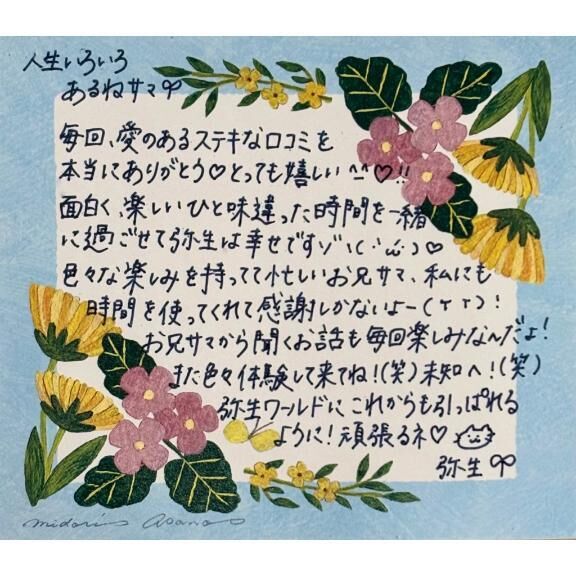 人生いろいろ
あるねサマ♡
毎回、愛のあるステキな口コミを
本当にありがとう♡とっても嬉しい^^♡!!
面白く、楽しいひと味違った時間を一緒
に過ごせて弥生は幸せです♡
色々な楽しみを持ってて忙しいお兄サマ、私にも
時間を使ってくれて感謝しかないよー(TT)!
お兄サマから聞くお話も毎回楽しみなんだよ!
また色々体験して来てね!(笑)未知へ!(笑)
弥生ワールドにこれからも引っぱれる
ように!頑張るネ♡
弥生
Midori Asano